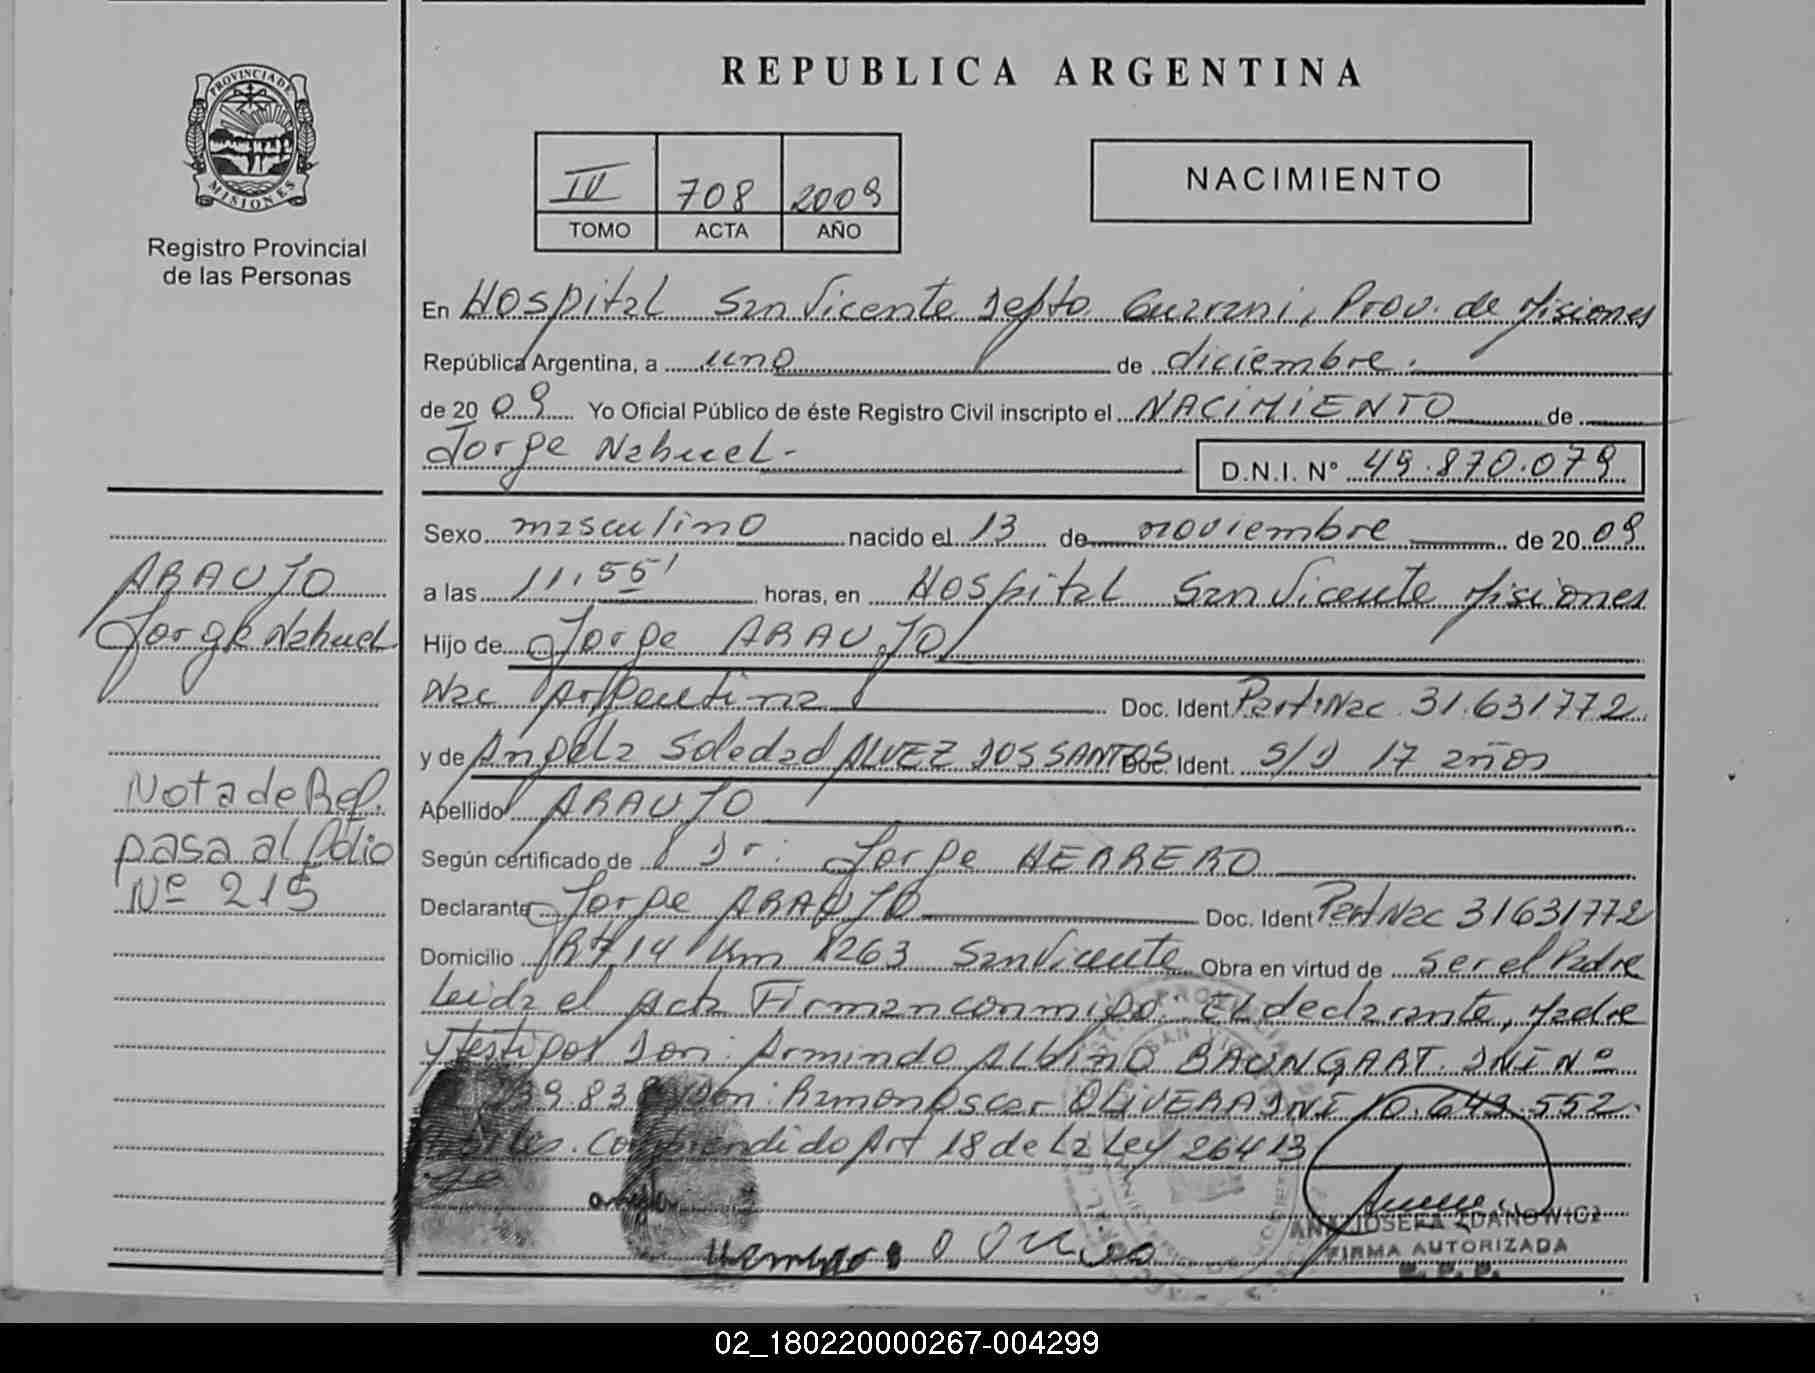 REPUBLICA ARGENTINA
PROVINCIA DE MISIONES
Registro Provincial
de las Personas
IV 708 2009
TOMO ACTA AÑO
NACIMIENTO
En Hospital San Vicente Depto Guarani, Prov. de Misiones
República Argentina, a uno de diciembre.
de 20 09 Yo Oficial Público de éste Registro Civil inscripto el NACIMIENTO de
Jorge Nahuel-
D.N.I. N° 49.870.079
Sexo masculino nacido el 13 de noviembre de 20 09
a las 11,55' horas, en Hospital San Vicente Misiones
Hijo de Jorge ARAUJO
Nac Argentina Doc. Ident. Part. Nac 31.631772
y de Angela Soledad ALVEZ DOS SANTOS Doc. Ident. S/D 17 años
Apellido ARAUJO
Según certificado de Dr: Jorge HERRERO
Declarante Jorge ARAUJO Doc. Ident Part Nac 31631772
Domicilio Rta 14 Km 1263 San Vicente Obra en virtud de ser el Padre
Leida el Acta Firman conmigo: El declarante, Madre
y testigos Don: Armindo Albino BAUNGART. DNI Nº
39.83 Don: Ramon Oscar OLIVERA DNI 10.643.552
Comprendido Art 18 de La Ley 26413
ANA JOSEFA ZDANOWICZ
FIRMA AUTORIZADA
R. P. P.
ARAUJO
Jorge Nahuel
Nota de Ref.
pasa al folio
Nº 215
02_180220000267-004299